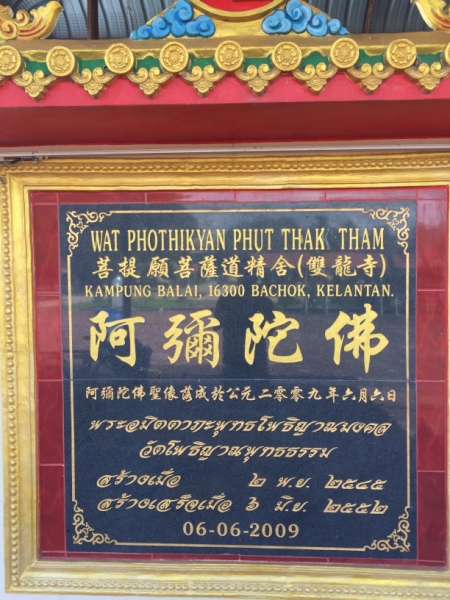 WAT PHOTHIKYAN PHUT THAK THAM
菩提願菩薩道精舍(雙龍寺)
KAMPUNG BALAI, 16300 BACHOK, KELANTAN.
阿彌陀佛
阿彌陀佛聖像落成於公元二零零九年六月六日
พระอมิตดาภะพุทธโพธิญาณมงคล
วัดโพธิญาณพุทธธรรม
สร้างเมื่อ ๒ พ.ย. ๒๕๔๕
สร้างเสร็จเมื่อ ๖ มิ.ย. ๒๕๕๒
06-06-2009